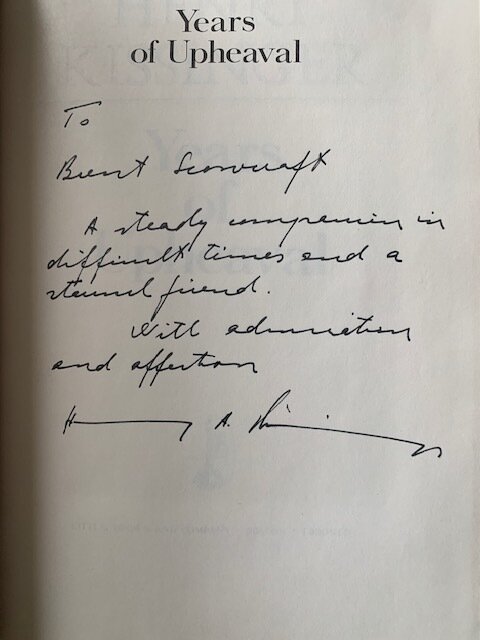 Years
of Upheaval
To
Brent Scowcroft
A steady companion in
difficult times and a
staunch friend.
With admiration
and affection
Henry A. Kissinger